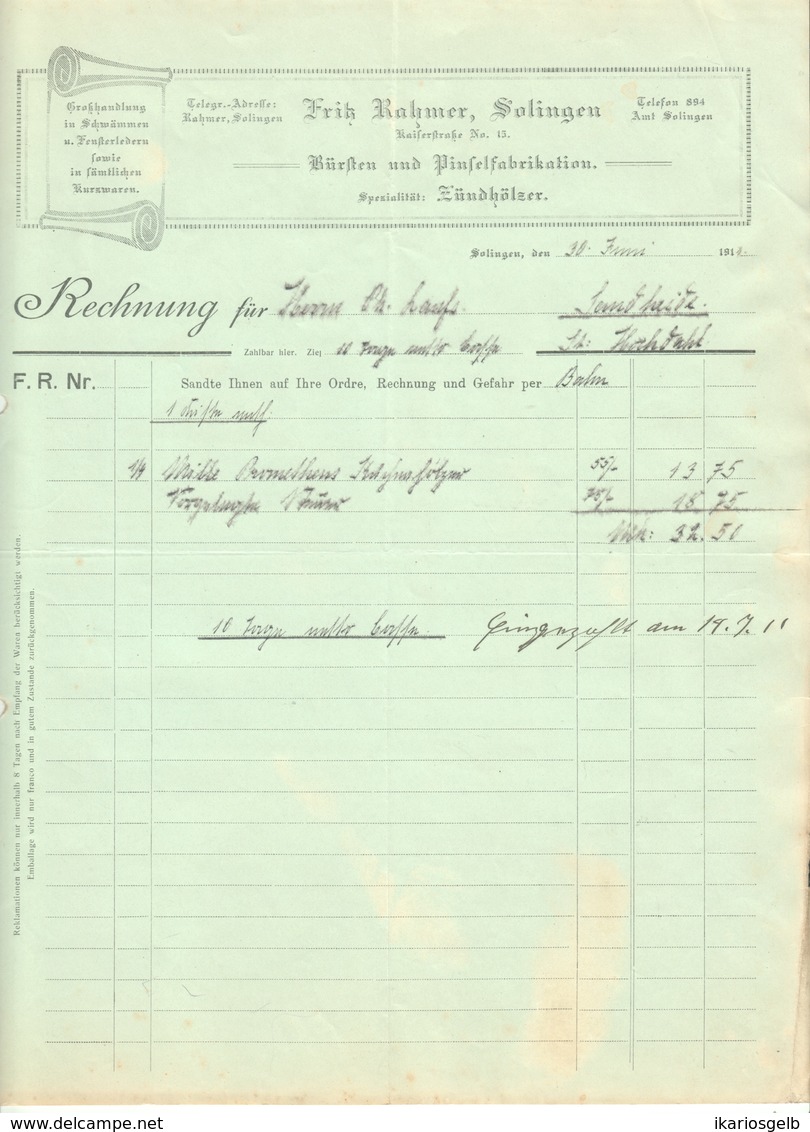 Großhandlung
in Schwämmen
u. Fensterledern
sowie
in sämtlichen
Kurzwaren.
Telegr.-Adresse:
Rahmer, Solingen
Fritz Rahmer, Solingen
Kaiserstraße No. 15.
Telefon 894
Amt Solingen
Bürsten und Pinselfabrikation.
Spezialität: Zündhölzer.
Solingen, den 30. Juni 191
Rechnung für Herrn Sandheide.
Zahlbar hier. Ziel 10 Tage netto Cassa St: Hochdahl
F. R. Nr. Sandte Ihnen auf Ihre Ordre, Rechnung und Gefahr per Bahn
1 Kiste
1/4 Mille Prometheus 55/- 13 75
75/- 18 75
Mk: 32.50
10 Tage netto Cassa. Eingezahlt am 19.7.11
Reklamationen können nur innerhalb 8 Tagen nach Empfang der Waren berücksichtigt werden.
Emballage wird nur franco und in gutem Zustande zurückgenommen.
delcampe.net
ikariosgelb